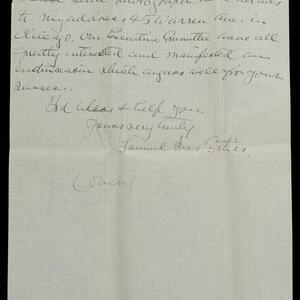 to my address 45 Warren Ave. in
Chicago. Our Executive Committee were all
greatly interested and manifested an
enthusiasm which augurs well for your
success.
God bless & help you
Yours very truly
Samuel Ives Curtiss.
(over)